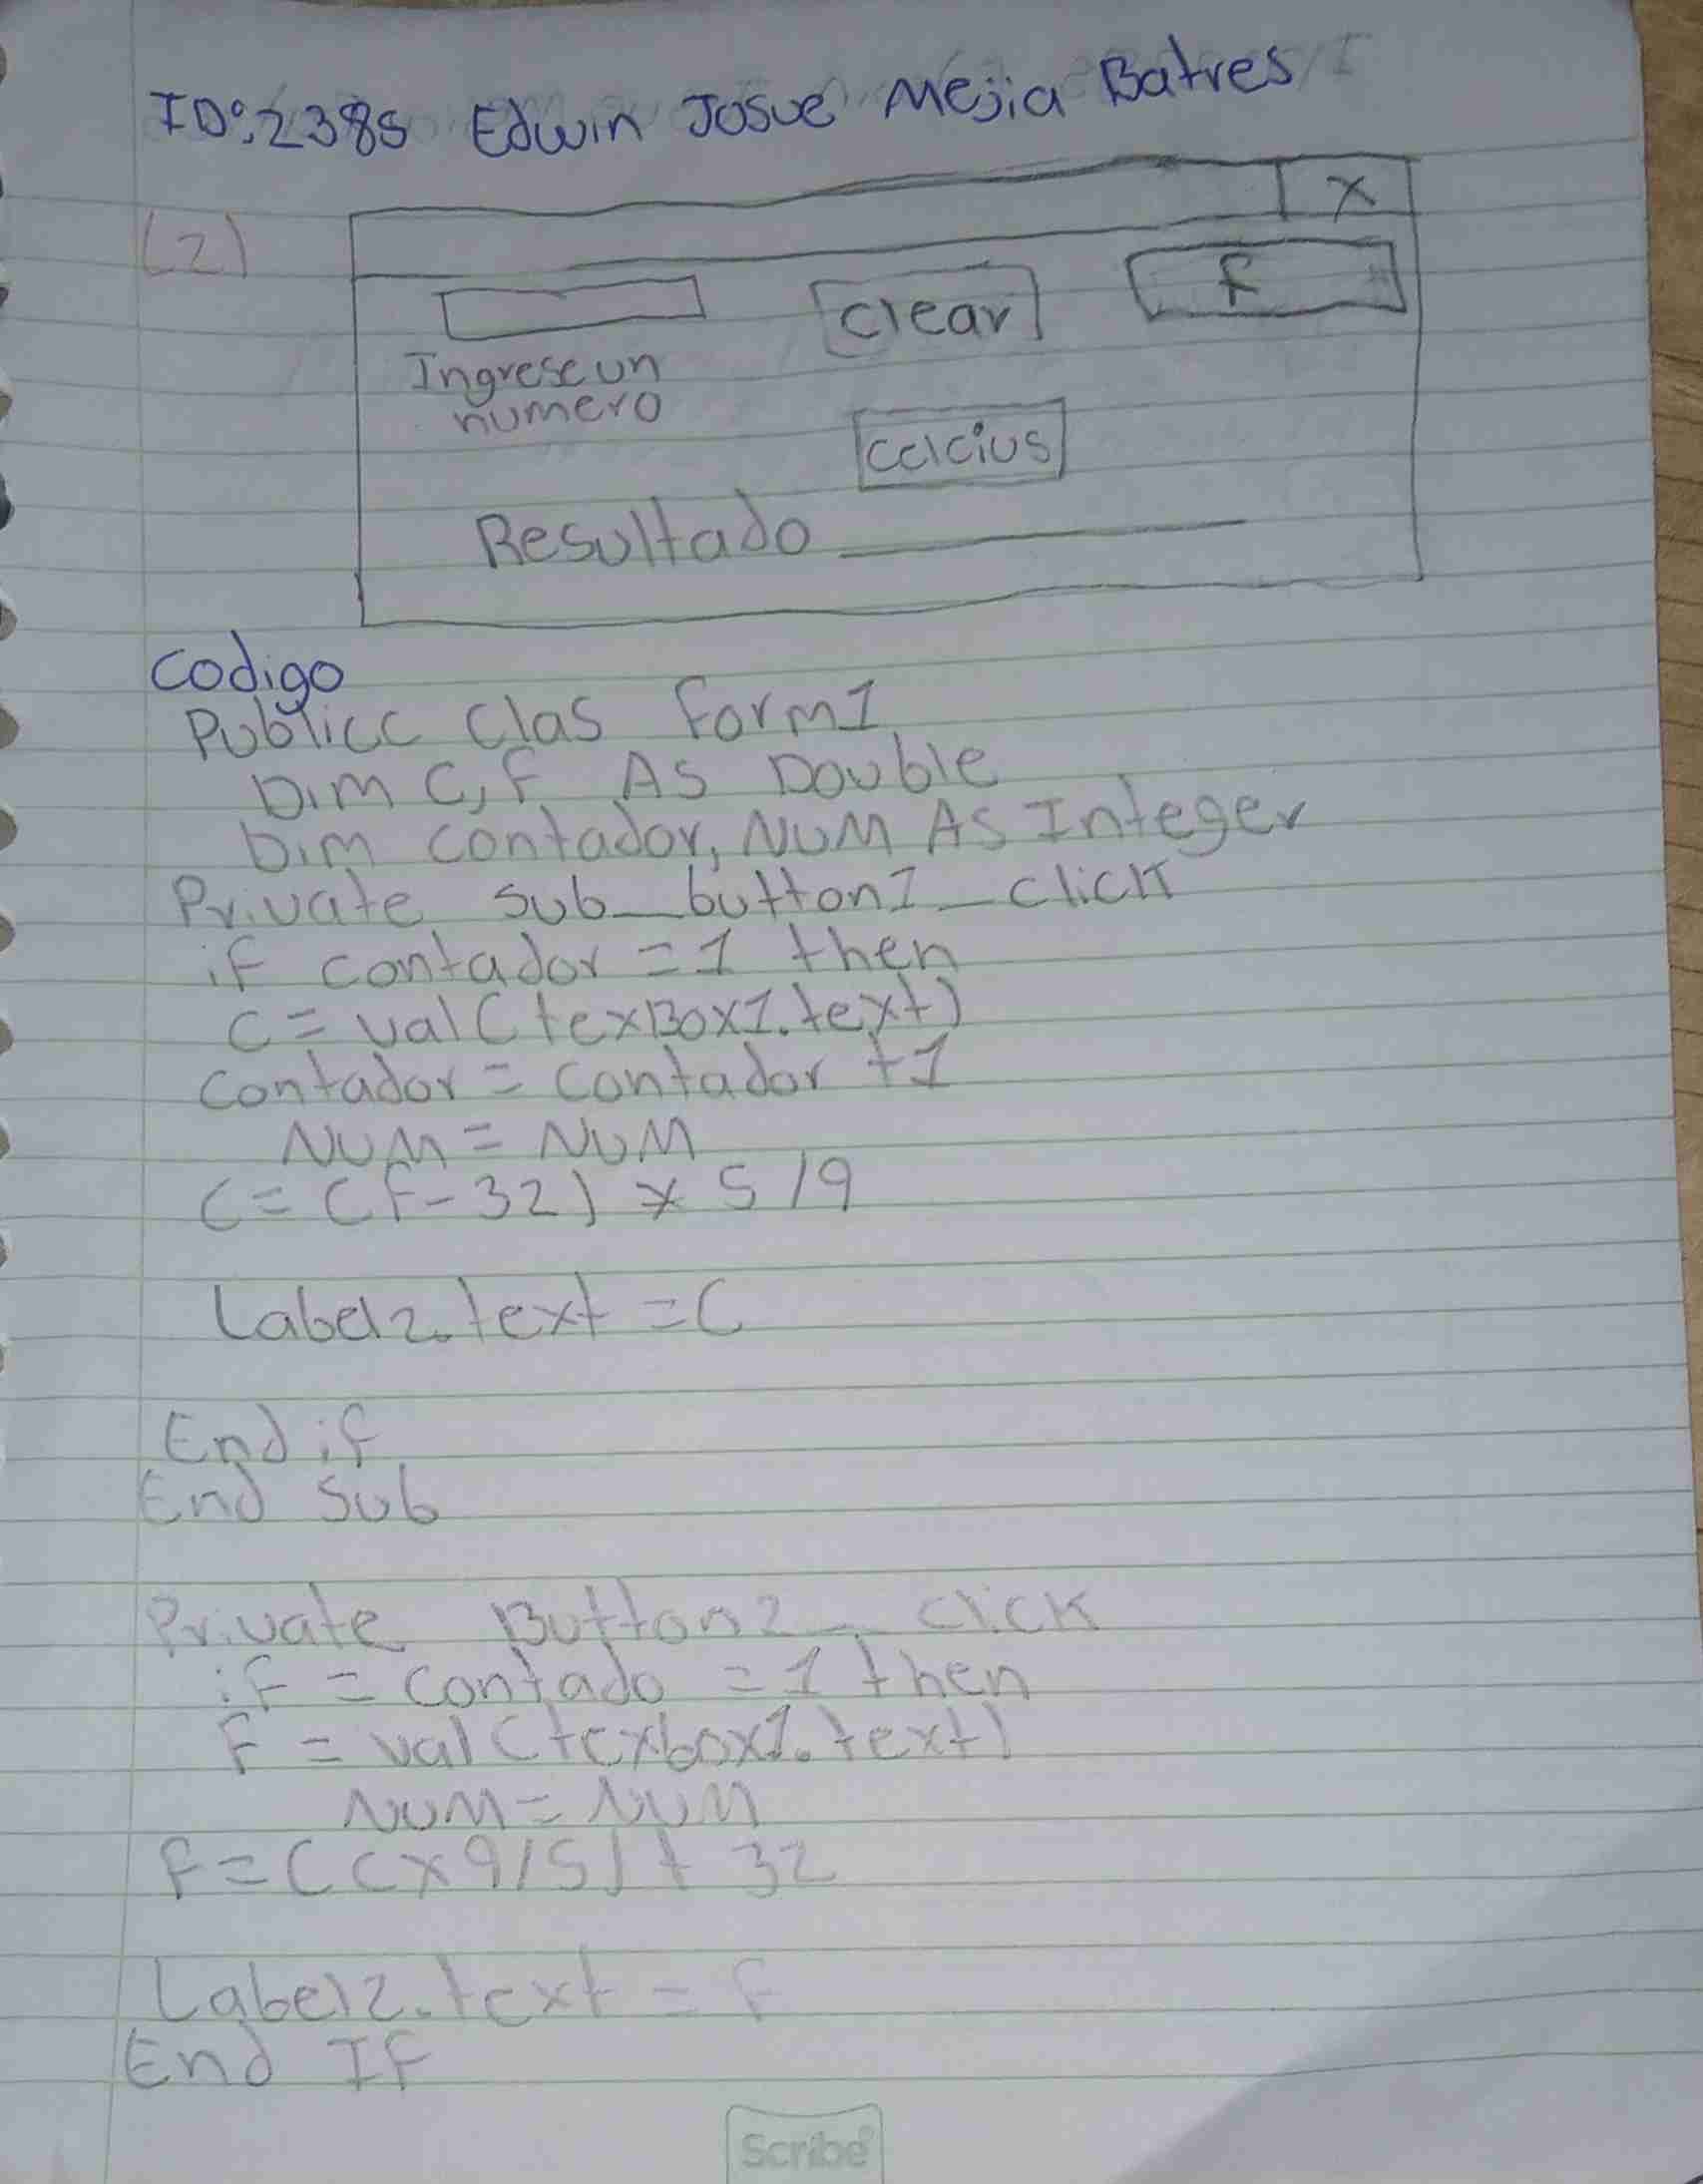 ID:2385 Edwin Josue Mejia Batres
(2)
X
Clear
F
Ingrese un
numero
Celcius
Resultado
Codigo
Publicc Clas Form1
Dim C, F As Double
Dim contador, NUM As Integer
Private sub_button1_click
if contador = 1 then
C = val(texBox1.text)
Contador = Contador +1
NUM = NUM
C = (F-32) * 5/9
Label2.text = C
End if
End Sub
Private Button2_click
if = contado = 1 then
F = val(texbox1.text)
NUM = NUM
F = (C x 9/5) + 32
Label2.text = F
End IF
Scribe